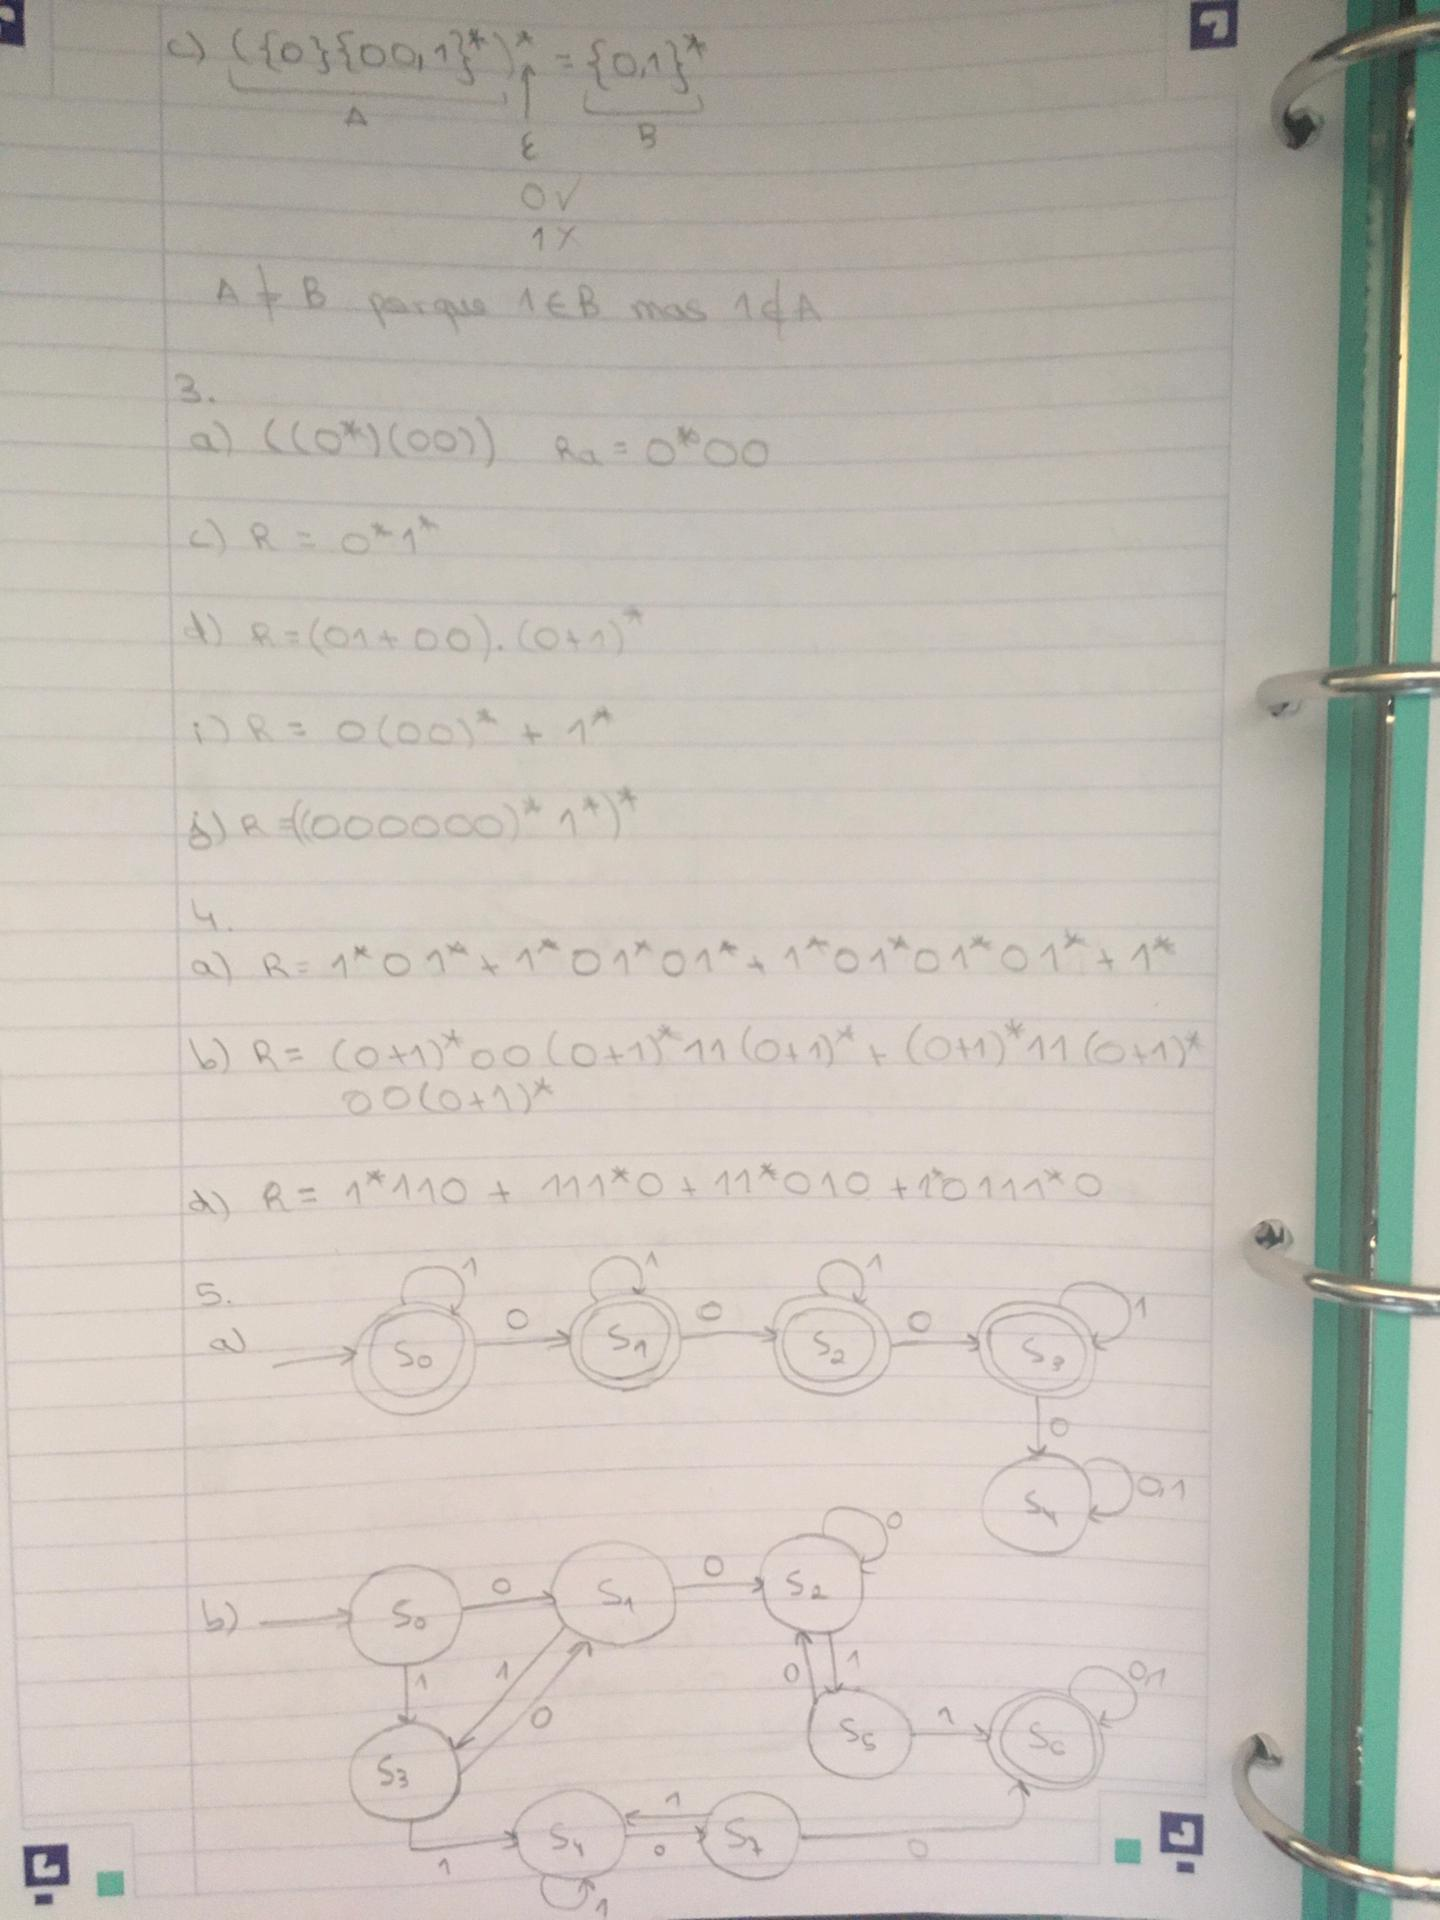 c) ({0}{00,1}*)* = {0,1}*
A
B
ε
0✓
1×
A ≠ B porque 1∈B mas 1∉A
3.
a) ((0*)(00)) Ra = 0*00
c) R = 0*1*
d) R=(01+00).(0+1)*
i) R = 0(00)* + 1*
j) R=((000000)*1*)*
4.
a) R= 1*01* + 1*01*01* + 1*01*01*01* + 1*
b) R= (0+1)*00(0+1)*11(0+1)* + (0+1)*11(0+1)*
00(0+1)*
d) R= 1*110 + 111*0 + 11*010 + 1*0111*0
5.
a) S0 0 S1 0 S2 0 S3
1 1 1 1
0
S4 0,1
b) S0 0 S1 0 S2 0
1 1 0 0 1
S3 S5 1 S6 0,1
1 S4 1 0 S7 0
1